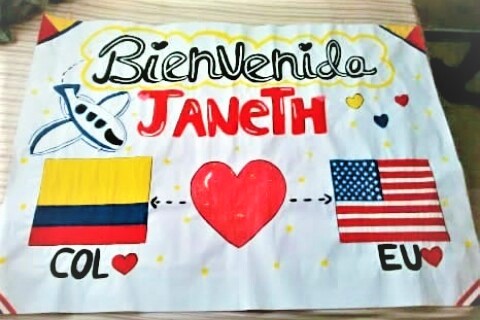 Bienvenida
JANeTH
COL
EU